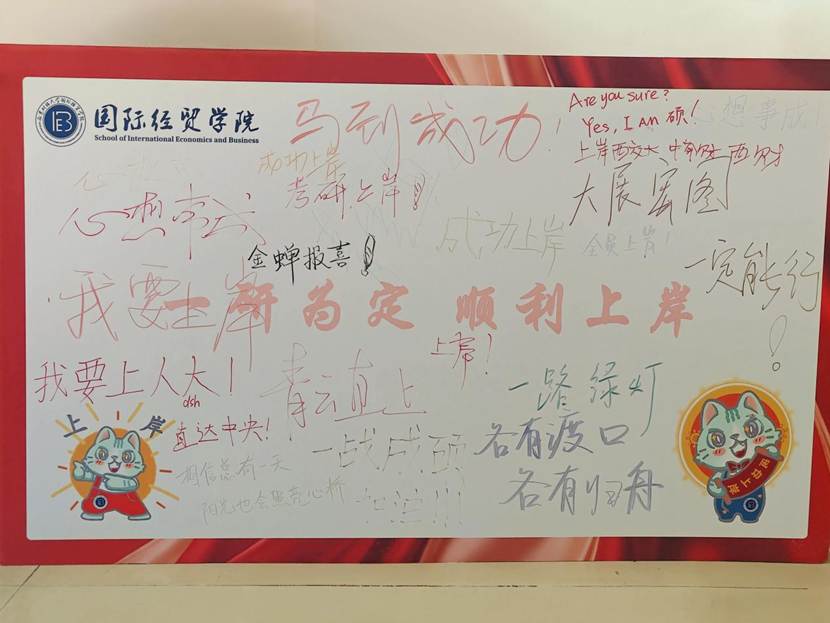 国际经贸学院
School of International Economics and Business
IEB
马到成功!
Are you sure?
Yes, I AM 硕!
心想事成!
上岸西交大 中财 西财
成功上岸
考研上岸!
心想事成
大展宏图
成功上岸
全员上岸!
金蝉报喜!
一定能行!
我要上岸
一研为定 顺利上岸
上岸!
我要上人大!
青云直上
一路绿灯
直达中央!
各有渡口
各有归舟
一战成硕
加油!!!
相信总有一天
阳光也会照亮心桥
上岸
成功上岸